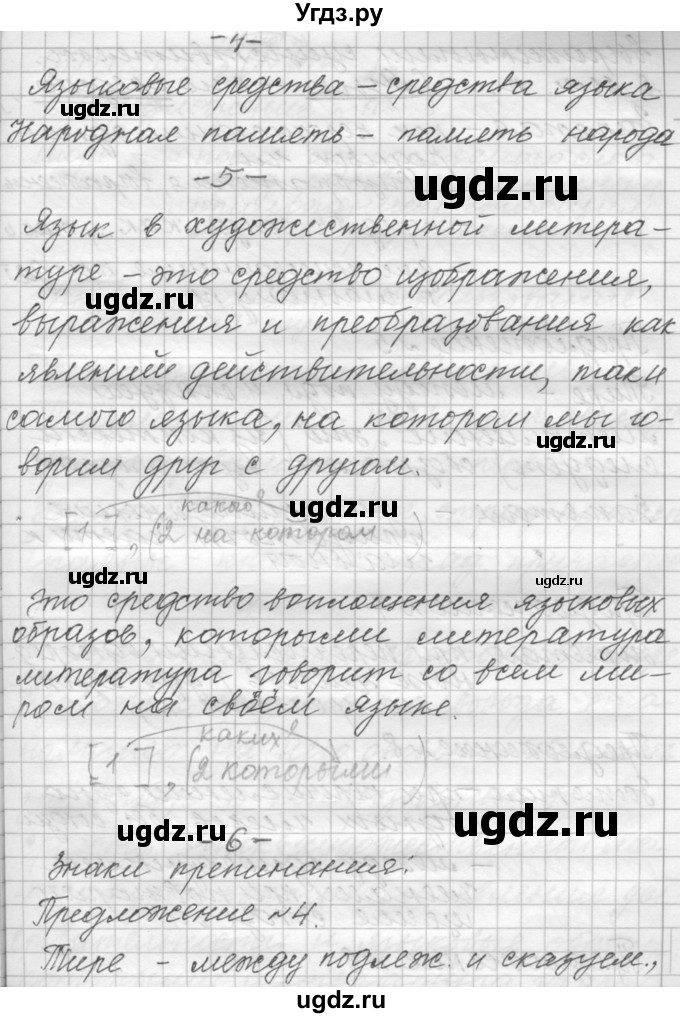 Угдз.ру
-4-
Языковые средства – средства языка
Народная память – память народа
-5-
Язык в художественной литера-
туре – это средство изображения,
выражения и преобразования как
явлений действительности, так и
самого языка, на котором мы го-
ворим друг с другом.
какого?
[1], (2 на котором)
Это средство воплощения языковых
образов, которыми литература
литература говорит со всем ми-
ром на своём языке.
каких?
[1], (2 которыми)
-6-
Знаки препинания:
Предложение №4.
Тире – между подлеж. и сказуем.,
ugdz.ru
ugdz.ru
ugdz.ru
ugdz.ru
ugdz.ru
ugdz.ru
ugdz.ru
ugdz.ru
ugdz.ru
ugdz.ru
ugdz.ru
ugdz.ru